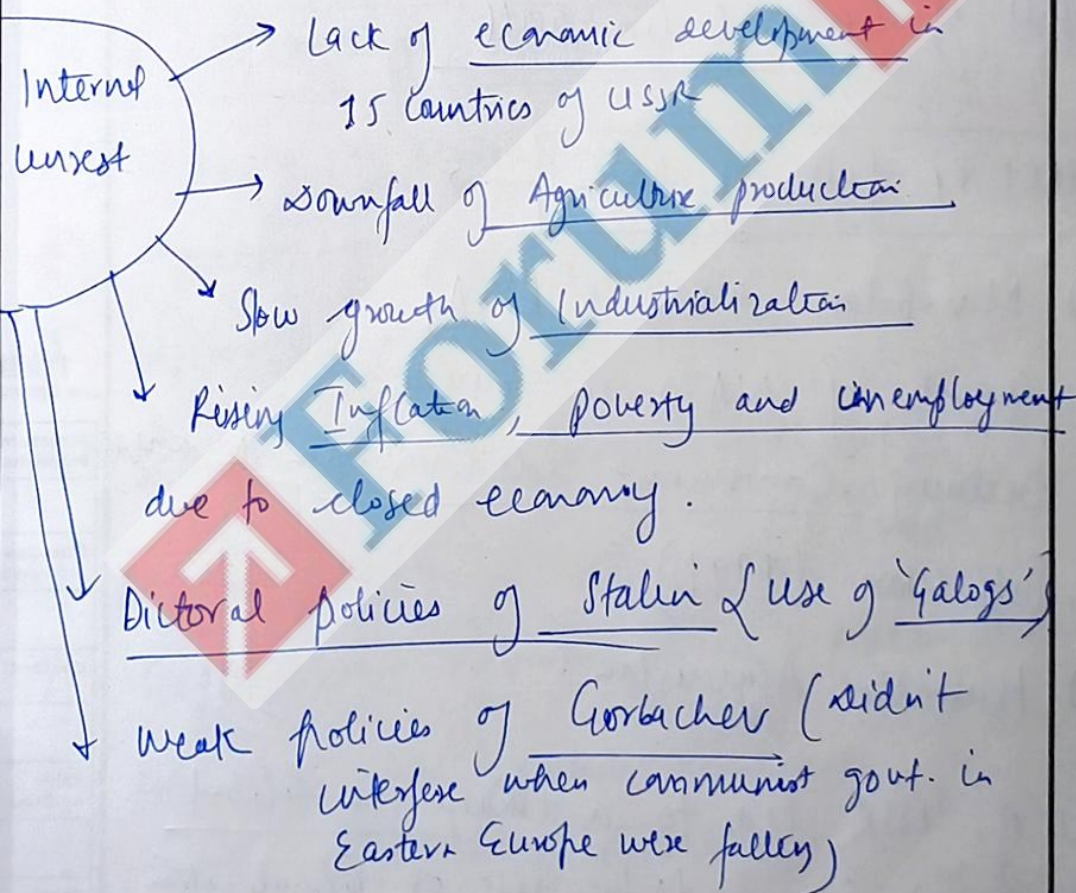 Internal
unrest
Lack of economic development in
15 Countries of USSR
Downfall of Agriculture production
Slow growth of Industrialization
Rising Inflation, poverty and unemployment
due to closed economy.
Dictoral policies of Stalin (Use of 'Galogs')
Weak policies of Gorbachev (Didn't
interfere when communist govt. in
Eastern Europe were fallen)
Forum